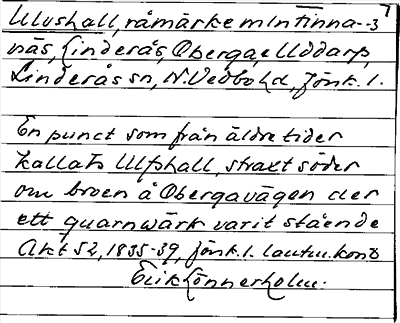 Ulvshall, råmärke mln Tinna- 3
näs, Linderås, Oberga, Uddarp,
Linderås sn, N. Vedbo hd, Jönk. l.
En punct som från äldre tider
kallats Ulfshall, straxt söder
om broen å Obergavägen der
ett quarnwärk varit stående
Akt 52, 1835-39, Jönk. l. lantm.kont
Erik Lönnerholm.